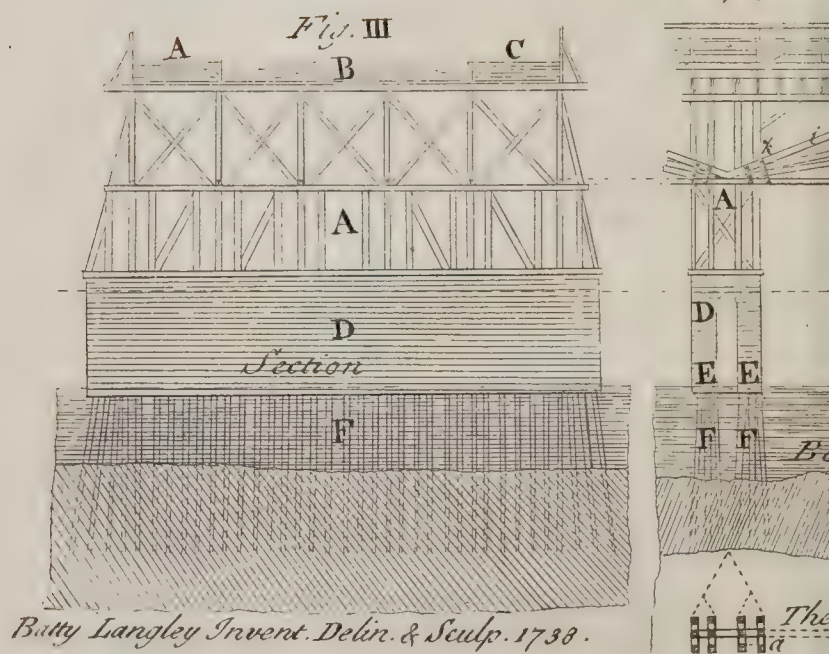 Fig. III
A
B
C
A
D
Section
F
Batty Langley Invent. Delin. & Sculp. 1738.
x i
A
D
E E
F F
The
a